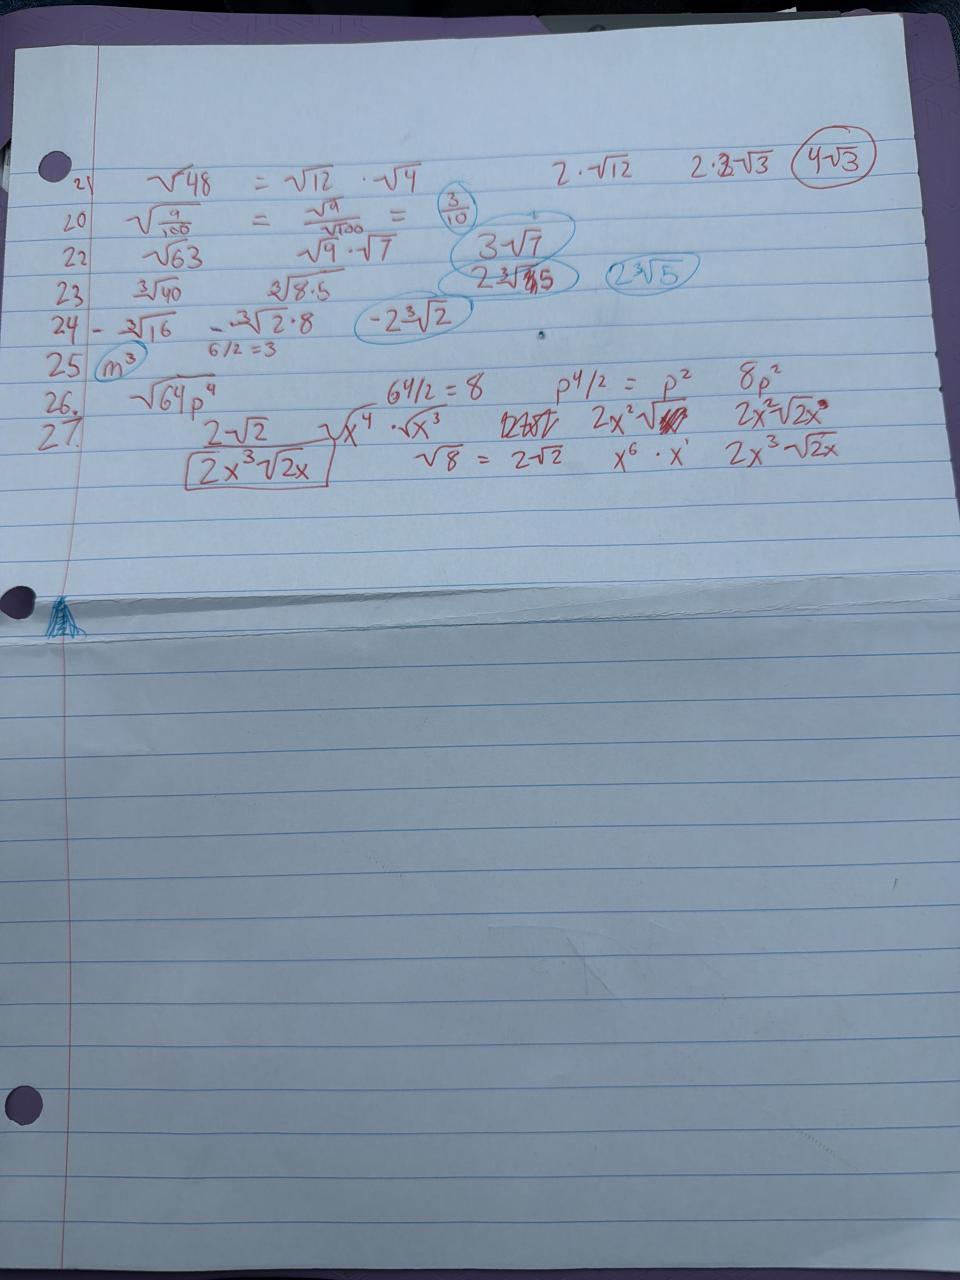 21 √48 = √12 · √4 2 · √12 2·2√3 4√3
20 √(9/100) = √9/√100 = 3/10
22 √63 √9 · √7 3√7
23 ∛40 ∛8·5 2∛5 2∛5
24 - ∛16 - ∛2·8 -2∛2
25 m³ 6/2 = 3
26. √64p⁴ 64/2 = 8 p⁴/2 = p² 8p²
27. 2√2 √x⁴ · √x³ 2x²√ 2x²√2x³
2x³√2x √8 = 2√2 x⁶ · x¹ 2x³√2x